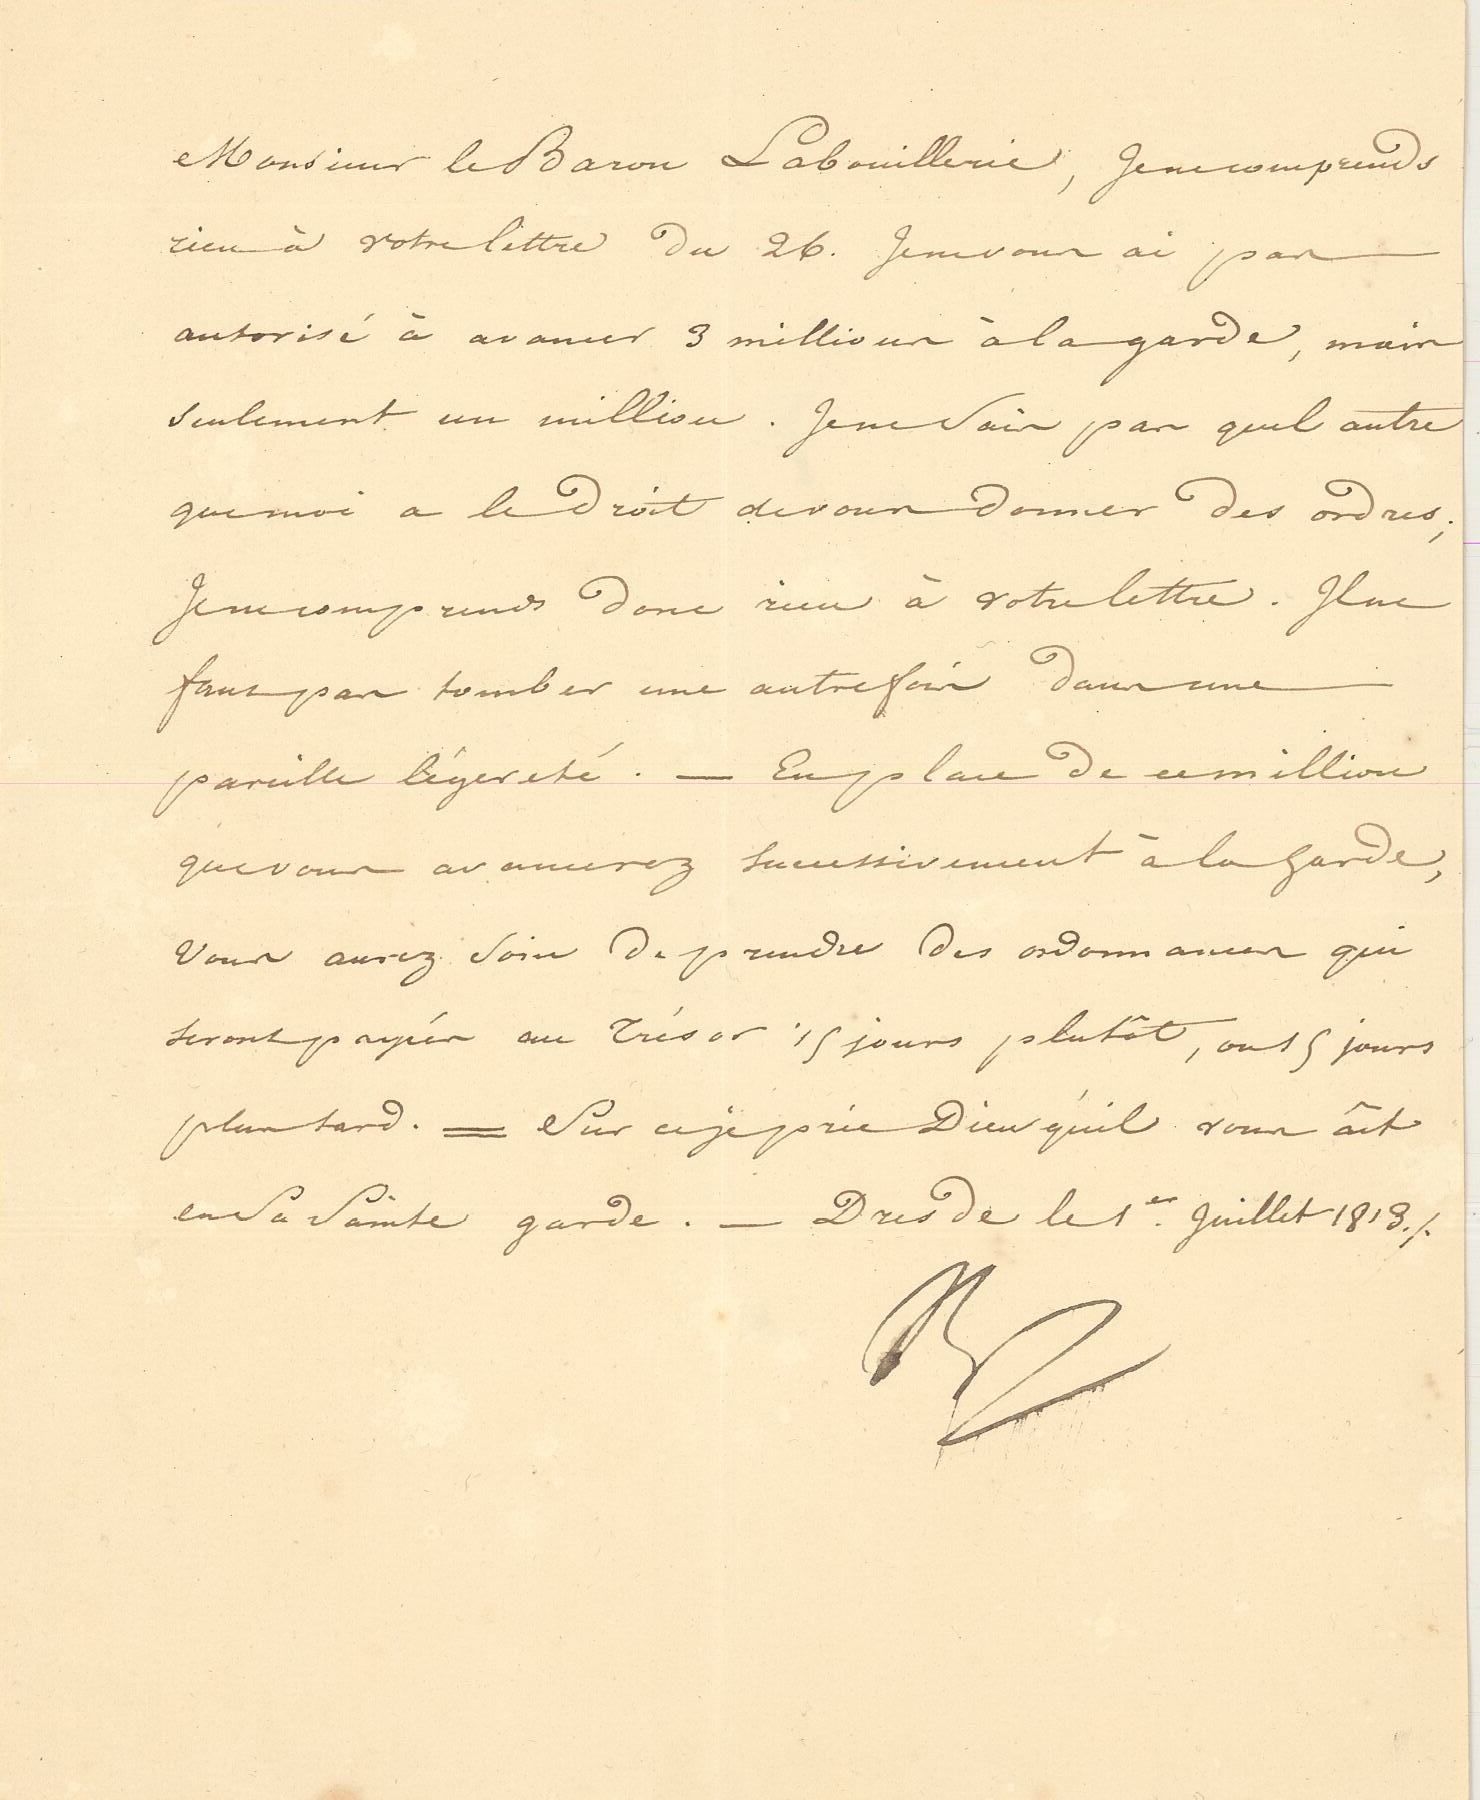 Monsieur le Baron Labouillerie, Je ne comprends
rien à votre lettre du 26. Je ne vous ai pas
autorisé à avancer 3 millions à la garde, mais
seulement un million. Je ne Sais pas quel autre
que moi a le droit de vous donner des ordres;
Je ne comprends donc rien à votre lettre. Il ne
faut pas tomber une autre fois dans une
pareille légereté. — En place de ce million
que vous avancerez successivement à la Garde,
Vous aurez Soin de prendre des ordonnances qui
seront payées au Trésor 15 jours plutôt, ou 15 jours
plus tard. = Sur ce je prie Dieu qu'il vous ait
en Sa Sainte garde. — Dresde le 1er. Juillet 1813./.